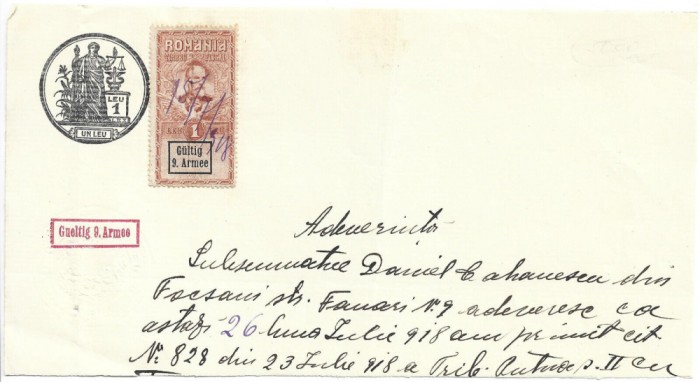 LEU
1
UN LEU
ROMANIA
TIMBRU FISCAL
LEU 1
Gültig
9. Armee
Gueltig 9. Armee
Adeverință
Subsemnatul Daniel Cahanescu din
Focsani str. Fanari N. 9 adeveresc ca
astazi 26 luna Iulie 918 am primit cit.
No 828 din 23 Iulie 918 a Trib. Putna s. II cu